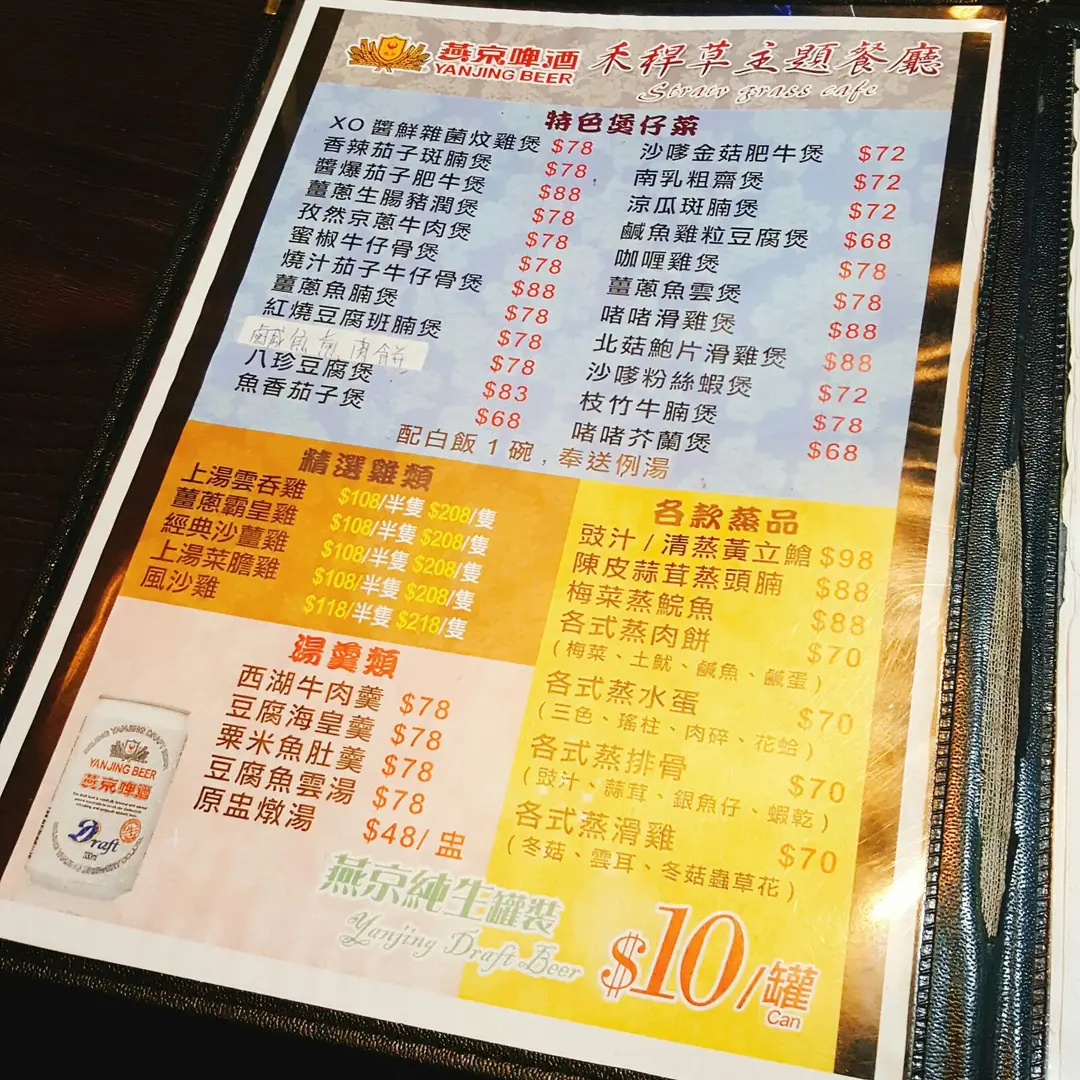 燕京啤酒
YANJING BEER
禾稈草主題餐廳
Straw grass cafe
特色煲仔菜
XO 醬鮮雜菌炆雞煲 $78
香辣茄子斑腩煲 $78
醬爆茄子肥牛煲 $88
薑蔥生腸豬潤煲 $78
孜然京蔥牛肉煲 $78
蜜椒牛仔骨煲 $78
燒汁茄子牛仔骨煲 $88
薑蔥魚腩煲 $78
紅燒豆腐班腩煲 $78
鹹魚 肉餅 $78
八珍豆腐煲 $83
魚香茄子煲 $68
沙嗲金菇肥牛煲 $72
南乳粗齋煲 $72
涼瓜斑腩煲 $72
鹹魚雞粒豆腐煲 $68
咖喱雞煲 $78
薑蔥魚雲煲 $78
啫啫滑雞煲 $88
北菇鮑片滑雞煲 $88
沙嗲粉絲蝦煲 $72
枝竹牛腩煲 $78
啫啫芥蘭煲 $68
配白飯1碗,奉送例湯
精選雞類
上湯雲吞雞 $108/半隻 $208/隻
薑蔥霸皇雞 $108/半隻 $208/隻
經典沙薑雞 $108/半隻 $208/隻
上湯菜膽雞 $108/半隻 $208/隻
風沙雞 $118/半隻 $218/隻
湯羹類
西湖牛肉羹 $78
豆腐海皇羹 $78
粟米魚肚羹 $78
豆腐魚雲湯 $78
原盅燉湯 $48/ 盅
各款蒸品
豉汁/清蒸黃立鱠 $98
陳皮蒜茸蒸頭腩 $88
梅菜蒸鯇魚 $88
各式蒸肉餅 $70
(梅菜、土魷、鹹魚、鹹蛋)
各式蒸水蛋 $70
(三色、瑤柱、肉碎、花蛤)
各式蒸排骨 $70
(豉汁、蒜茸、銀魚仔、蝦乾)
各式蒸滑雞 $70
(冬菇、雲耳、冬菇蟲草花)
YANJING BEER
燕京啤酒
Draft
330ml
燕京純生罐裝
Yanjing Draft Beer
$10/罐
Can